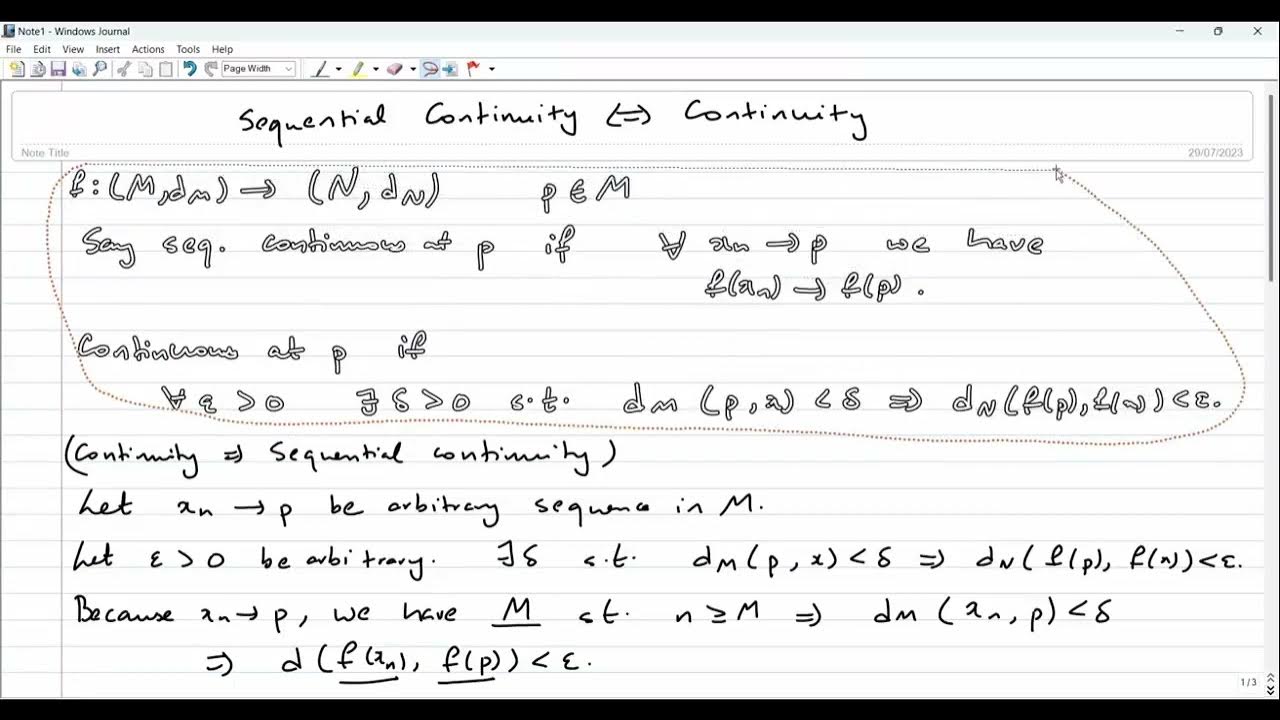 Note1 - Windows Journal
File Edit View Insert Actions Tools Help
Page Width
Sequential Continuity ⇔ Continuity
Note Title
29/07/2023
f : (M, dM) → (N, dN) p ∈ M
Say seq. continuous at p if ∀ xn → p we have
f(xn) → f(p) .
Continuous at p if
∀ ε > 0 ∃ δ > 0 s.t. dM (p, x) < δ ⇒ dN(f(p), f(x)) < ε.
(Continuity ⇒ Sequential continuity)
Let xn → p be arbitrary sequence in M.
Let ε > 0 be arbitrary. ∃ δ s.t. dM(p, x) < δ ⇒ dN( f(p), f(x)) < ε.
Because xn → p, we have M st. n ≥ M ⇒ dM (xn, p) < δ
⇒ d (f(xn), f(p)) < ε.
1/3